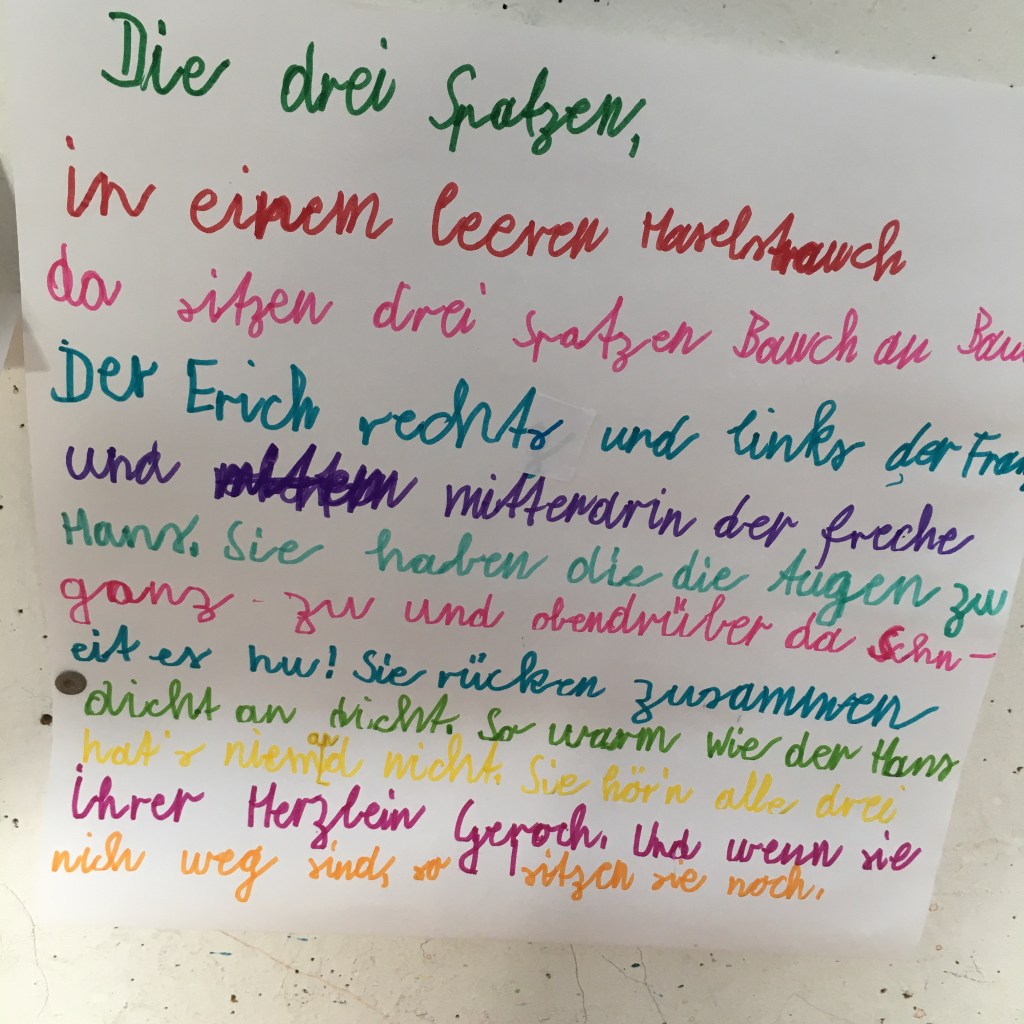 Die drei Spatzen,
in einem leeren Haselstrauch
da sitzen drei Spatzen Bauch an Bau
Der Erich rechts und links der Fran
und mittendrin der freche
Hans. Sie haben die die Augen zu
ganz - zu und obendrüber da schn-
eit es hu! Sie rücken zusammen
dicht an dicht. So warm wie der Hans
hat's niemand nicht. Sie hör'n alle drei
ihrer Herzlein Gepoch. Und wenn sie
nich weg sind, so sitzen sie noch.